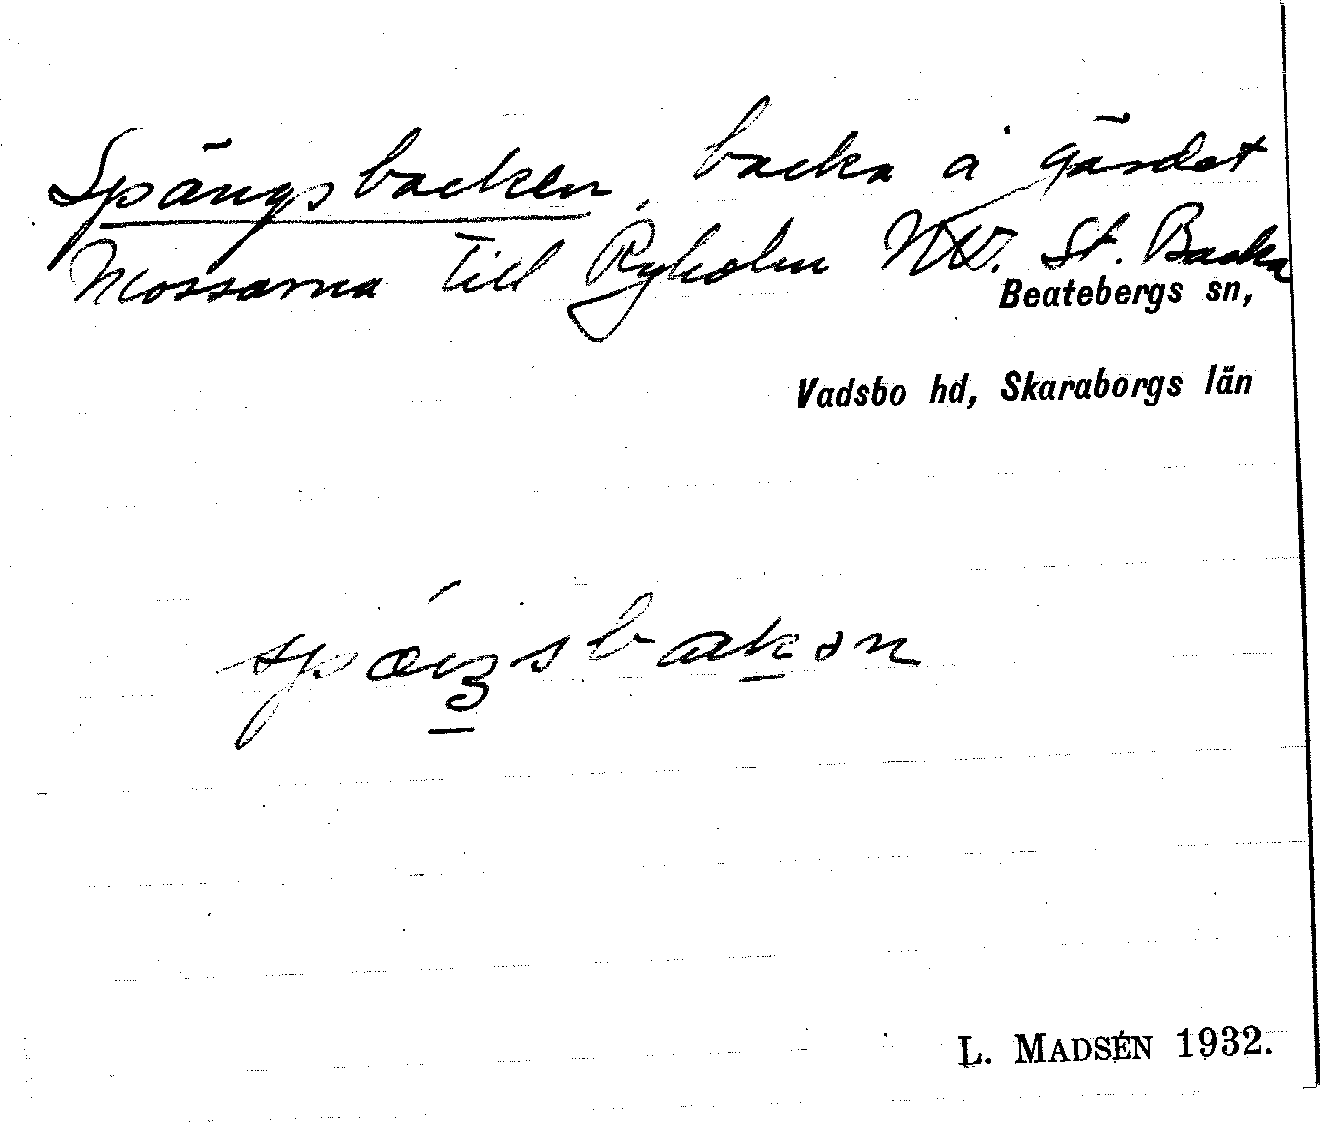 Spängsbacken, backa å gärdet
Mossarna till Ryholm NV. St. Backa
Beatebergs sn,
Vadsbo hd, Skaraborgs län
L. MADSÉN 1932.